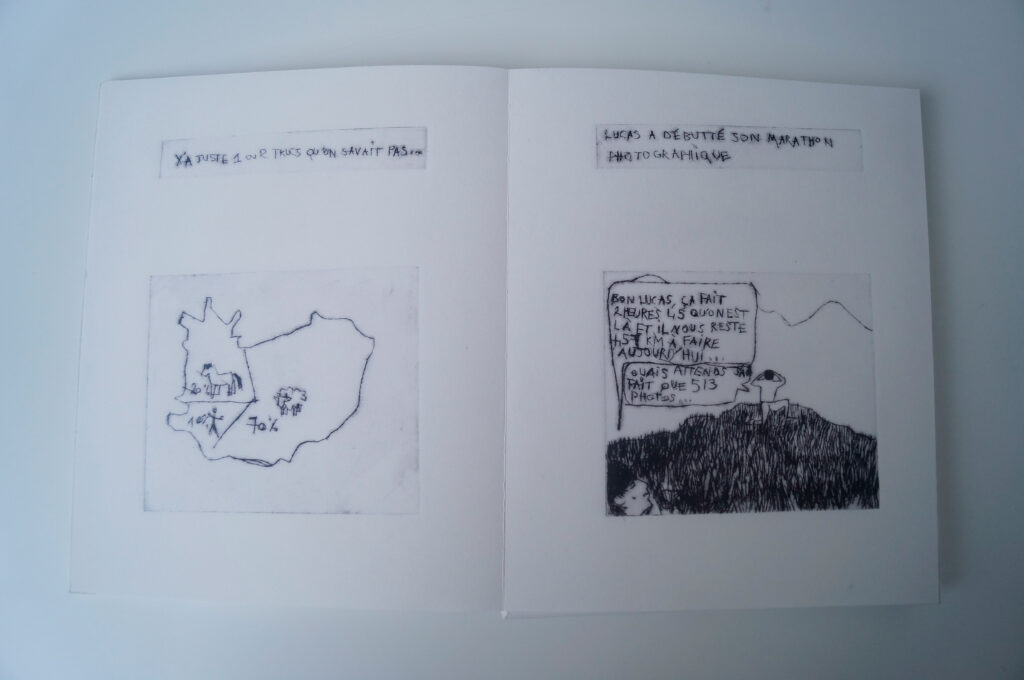 Y'A JUSTE 1 OU 2 TRUCS QU'ON SAVAIT PAS...
20%
10%
70%
LUCAS A DÉBUTTÉ SON MARATHON
PHOTOGRAPHIQUE
BON LUCAS, ÇA FAIT
2 HEURES 45 QU'ON EST
LÀ ET IL NOUS RESTE
457 KM A FAIRE
AUJOURD'HUI...
OUAIS ATTENDS J'AI
FAIT QUE 513
PHOTOS...